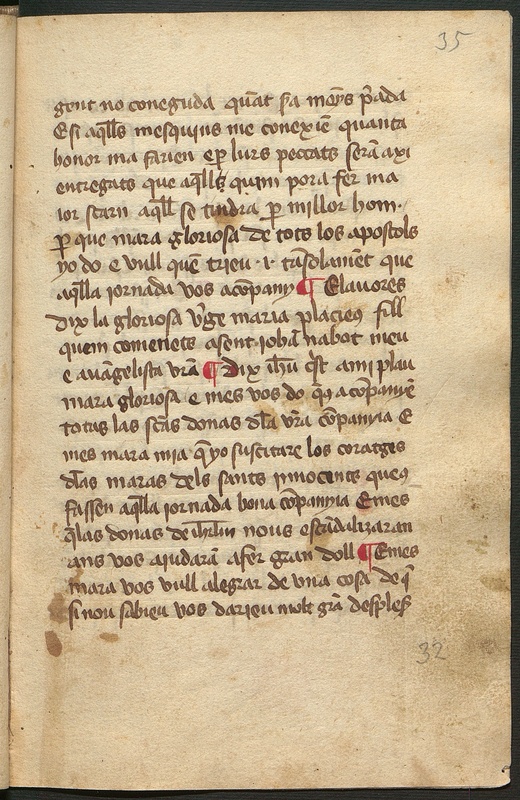 35
gent no coneguda quāt sa moỹs p̄ada
E si aq̄lls mesquins me conexiē quanta
honor ma farien e ꝑ lurs peccats serā axi
entregats que aq̄lls quim pora fer ma
ior scarn aq̄ll se tindra ꝑ millor hom·
ꝑ que mara gloriosa de tots los apostols
yo do e vull quē trieu ·i· tāsolamēt que
aq̄lla iornada vos acōpany ¶ E lauores
dix la gloriosa v̄ge maria placieꝰ fill
quem comenets a sent iohā nabot meu
e auāgelista vr̄a ¶ dix ih̄u x̄st a mi plau
mara gloriosa e mes vos do q̄ꝰ acōpanyē
totas las sc̄as donas dl̄a vr̄a cōpanyia E
mes mara mia q̄ yo suscitare los coratges
dl̄as maras dels sants innocents queꝰ
fassen aq̄lla iornada bona cōpanyia E mes
q̄las donas de ih̄rlm nous escādalizaran
ans vos aiudarā a fer gran doll ¶ E mes
mara vos vull alegrar de vna cosa de q̄
si nou sabieu vos darieu molt grā desples
32